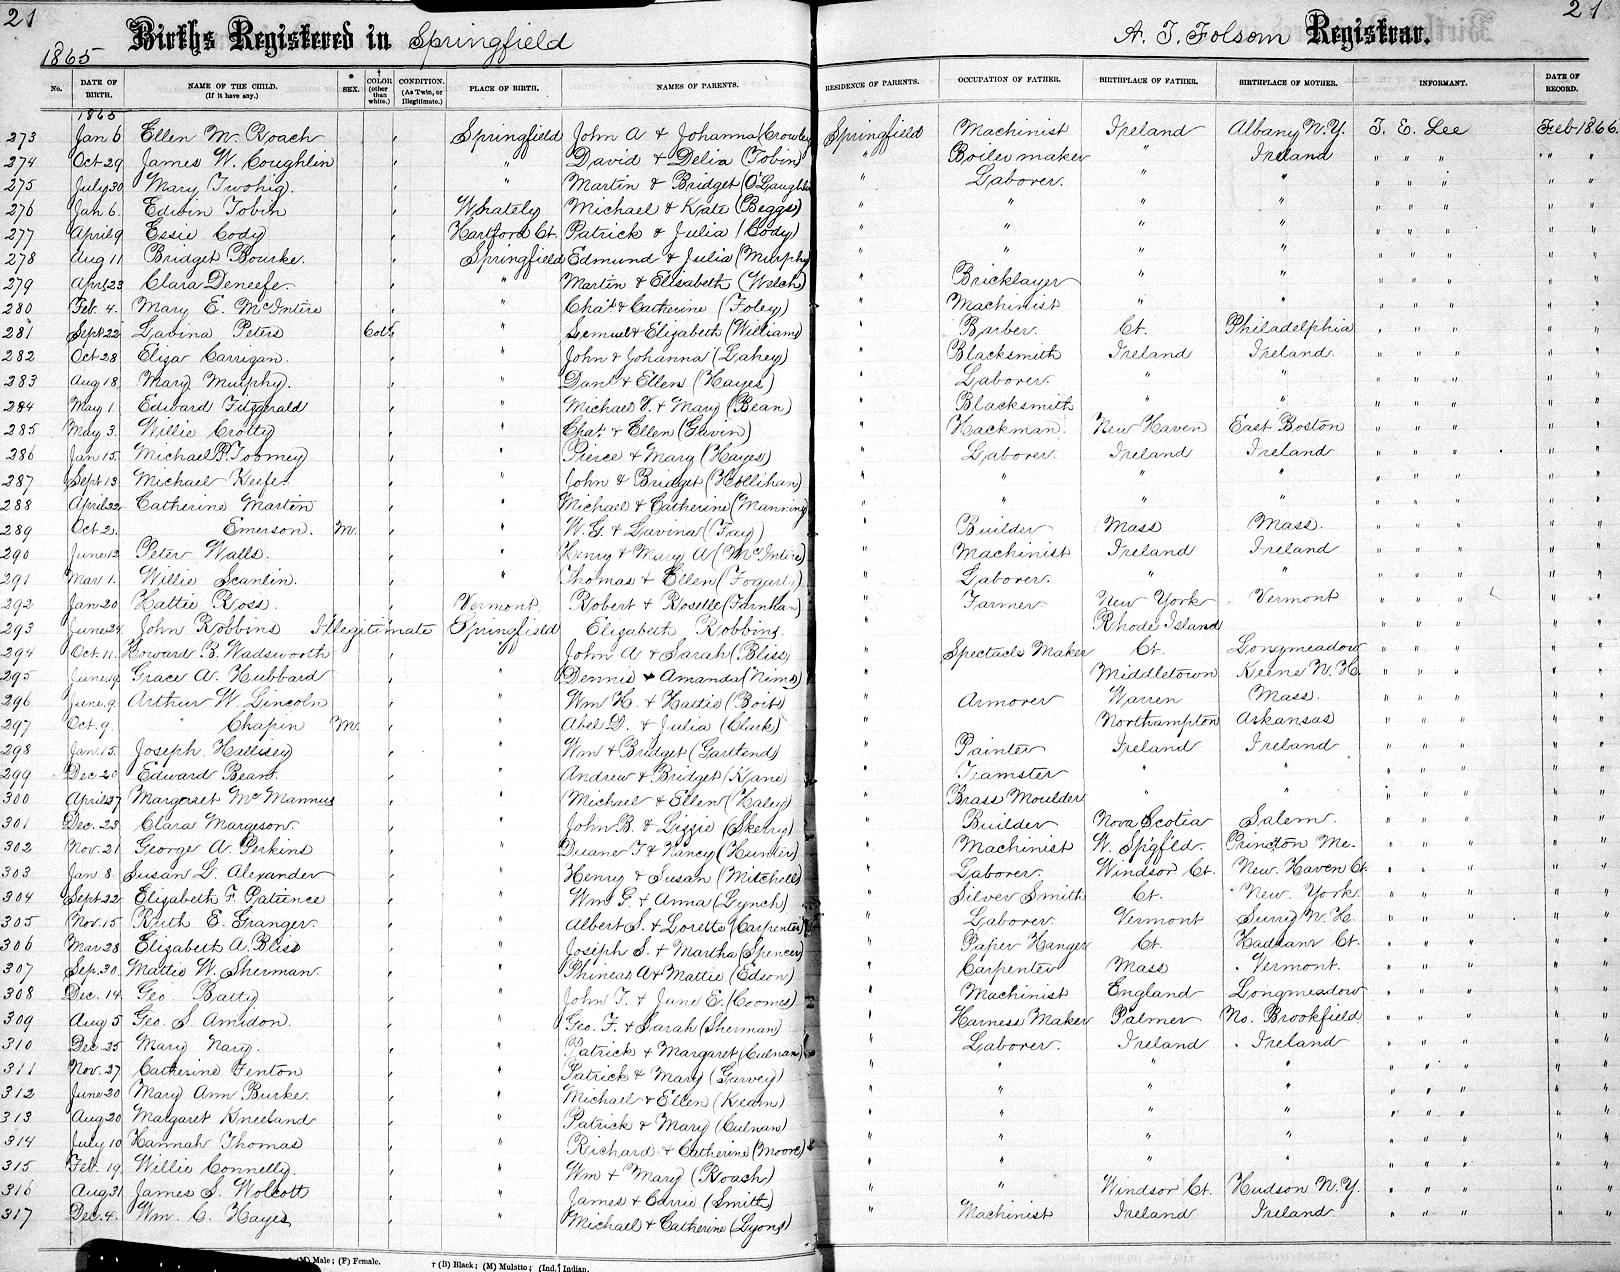 21 21
Births Registered in Springfield A. T. Folsom Registrar.
1865
No. DATE OF BIRTH. NAME OF THE CHILD. (If it have any.) * SEX. † COLOR (other than white.) CONDITION. (As Twin, or Illegitimate.) PLACE OF BIRTH. NAMES OF PARENTS. RESIDENCE OF PARENTS. OCCUPATION OF FATHER. BIRTHPLACE OF FATHER. BIRTHPLACE OF MOTHER. INFORMANT. DATE OF RECORD.
1865
273 Jan 6 Ellen M. Roach Springfield John A & Johanna (Crowley Springfield Machinist Ireland Albany N.Y. T. E. Lee Feb 1866
274 Oct 29 James W. Coughlin " David & Delia (Tobin) " Boiler maker " Ireland " " " " "
275 July 30 Mary Twohig. " Martin & Bridget (O'Laughlin " Laborer. " " " " " " "
276 Jan 6. Edwin Tobin Whately Michael & Kate (Beggs) " " " " " " " " "
277 April 9 Essie Cody Hartford Ct. Patrick & Julia (Cody) " " " " " " " " "
278 Aug 11 Bridget Bourke. Springfield Edmund & Julia (Murphy " " " " " " " " "
279 April 23 Clara Deneefe " Martin & Elisabeth (Welch) " Bricklayer " " " " " " "
280 Feb. 4. Mary E. McIntire " Chas. & Catherine (Foley) " Machinist " " " " " " "
281 Sept 22 Lavina Peters Cold. " Semuel & Elizabeth (Williams) " Barber Ct. Philadelphia " " " " "
282 Oct 28 Eliza Carrigan. " John & Johanna (Lahey) " Blacksmith Ireland Ireland. " " " " "
283 Aug 18 Mary Murphy. " Danl & Ellen (Hayes) " Laborer. " " " " " " "
284 May 1. Edward Fitzgerald " Michael V. & Mary (Bean) " Blacksmith " " " " " " "
285 May 3. Willie Crotty " Chas. & Ellen (Gavin) " Hackman. New Haven East Boston " " " " "
286 Jan 15. Michael P. Toomey " Pierce & Mary (Hayes) " Laborer. Ireland Ireland " " " " "
287 Sept 13 Michael Keefe. " John & Bridget (Hollihan) " " " " " " " " "
288 April 22 Catherine Martin " Michael & Catherine (Manning " " " " " " " " "
289 Oct 2. Emerson. M. " W. G. & Lavina (Fay) " Builder Mass Mass. " " " " "
290 June 12 Peter Walls. " Henry & Mary A (McIntire) " Machinist Ireland Ireland " " " " "
291 Mar 1. Willie Scanlin. " Thomas & Ellen (Fogarty) " Laborer. " " " " " " "
292 Jan 20 Hattie Ross. Vermont. Robert & Roselle (Farnhan) " Farmer New York Vermont " " " " "
293 June 24. John Robbins Illegitimate Springfield Elizabeth Robbins. " Rhode Island " " " " "
294 Oct. 11. Howard B. Wadsworth " John A & Sarah (Bliss) " Spectacle Maker Ct. Longmeadow " " " " "
295 June 19. Grace A. Hubbard " Dennis & Amanda (Nims) " Middletown Keene N.H. " " " " "
296 June 9. Arthur W. Lincoln " Wm H. & Hattie (Bois) " Armorer Warren Mass. " " " " "
297 Oct. 9. " Chapin M. " Abel D. & Julia (Clark) " Northampton Arkansas " " " " "
298 Jan 15. Joseph Hallisey " Wm & Bridget (Gartland) " Painter Ireland Ireland " " " " "
299 Dec 20 Edward Bean. " Andrew & Bridget (Kane) " Teamster " " " " " " "
300 April 27 Margaret McMannus " Michael & Ellen (Haley) " Brass Moulder " " " " " " "
301 Dec. 23 Clara Margeson. " John B. & Lizzie (Skerry) " Builder Nova Scotia Salem. " " " " "
302 Nov. 21 George A. Perkins " Duane T & Nancy (Hunter) " Machinist W. Spgfld. Princton Me. " " " " "
303 Jan 8. Susan L. Alexander " Henry & Susan (Mitchell) " Laborer. Windsor Ct. New. Haven Ct. " " " " "
304 Sept 22 Elizabeth F. Patience " Wm G. & Anna (Lynch) " Silver Smith Ct. New. York. " " " " "
305 Nov. 15 Ruth E. Granger. " Albert S. & Lorette (Carpenter) " Laborer. Vermont Surry N.H. " " " " "
306 Mar 28 Elizabeth A. Bliss " Joseph S. & Martha (Spencer) " Paper Hanger Ct. Haddam Ct. " " " " "
307 Sep. 30. Mattie W. Sherman. " Phineas A & Mattie (Edson) " Carpenter Mass Vermont. " " " " "
308 Dec. 14 Geo. Batty " John T. & Jane E. (Coomes) " Machinist England Longmeadow " " " " "
309 Aug 5 Geo. S. Amidon. " Geo. F. & Sarah (Sherman) " Harness Maker Palmer No. Brookfield " " " " "
310 Dec. 25 Mary Nary. " Patrick & Margaret (Culnan) " Laborer. Ireland Ireland " " " " "
311 Nov. 27 Catherine Fenton " Patrick & Mary (Garvey) " " " " " " " " "
312 June 20 Mary Ann Burke. " Michael & Ellen (Kearn) " " " " " " " " "
313 Aug 20 Margaret Kneeland " Patrick & Mary (Culnan) " " " " " " " " "
314 July 10 Hannah Thomas " Richard & Catherine (Moore) " " " " " " " " "
315 Feb. 19. Willie Connelly. " Wm & Mary (Roach) " " " " " " " " "
316 Aug 31 James S. Wolcott " James & Carrie (Smith) " " Windsor Ct. Hudson N.Y. " " " " "
317 Dec. 4. Wm. C. Hayes " Michael & Catherine (Lyons) " Machinist Ireland Ireland. " " " " "
(M) Male; (F) Female. † (B) Black; (M) Mulatto; (Ind.) Indian.